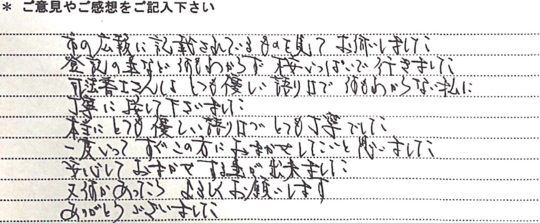 * ご意見やご感想をご記入下さい
市の広報に記載されているものを見てお伺いしました
登記の事など何もわからず 不安いっぱいで行きました
司法書士さんは とても優しい語り口で 何もわからない私に
丁寧に接して下さいました
本当にとても優しい語り口で とても丁寧でした
一度いって すぐこの方におまかせしたいと思いました
安心しておまかせする事が出来ました
又何かあったら よろしくお願いします
ありがとうございました